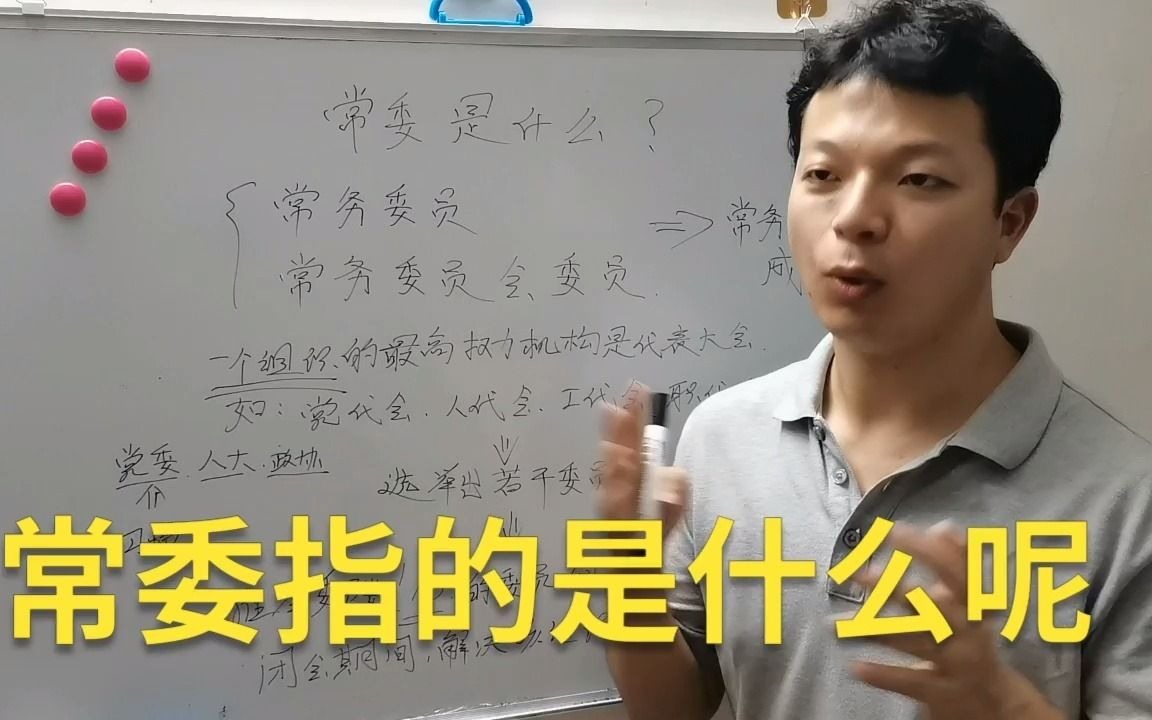 常委是什么？
常务委员 => 常务
常务委员会委员. 成
一个组织的最高权力机构是代表大会.
如：党代会、人代会、工代会 职代
党委. 人大. 政协
选举出若干委员
常委指的是什么呢
的委员
闭会期间,解决